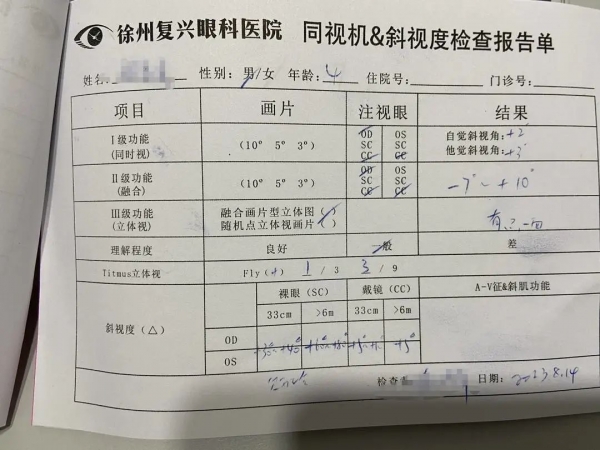 徐州复兴眼科医院 同视机&斜视度检查报告单
姓名: 性别:男/女 年龄:4 住院号: 门诊号:
项目 画片 注视眼 结果
I级功能 (同时视) (10° 5° 3°) OD SC CC OS SC CC 自觉斜视角:+2° 他觉斜视角:+3°
II级功能 (融合) (10° 5° 3°) OD SC CC OS SC CC -7°~+10°
III级功能 (立体视) 融合画片型立体图(✓) 随机点立体视画片( ) 有
理解程度 良好 一般 差
Titmus立体视 Fly(+) 1/3 3/9
斜视度(△) 裸眼(SC) 戴镜(CC) A-V征&斜肌功能
33cm >6m 33cm >6m
OD
OS +5°
检查者 日期: 2023.8.14